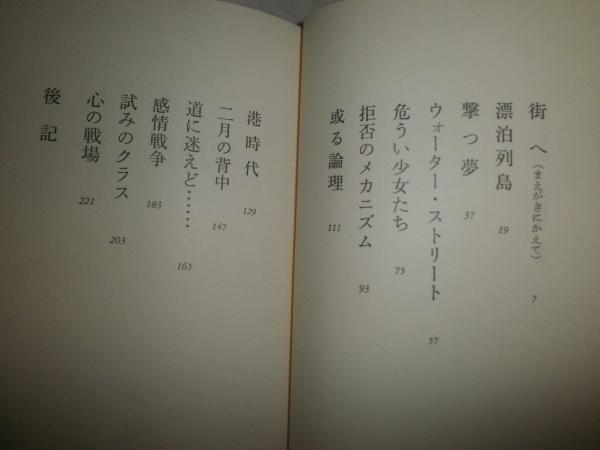 街へ(まえがきにかえて) 7
漂泊列島 19
撃つ夢 37
ウォーター・ストリート 57
危うい少女たち 75
拒否のメカニズム 93
或る論理 111
港時代 129
二月の背中 147
道に迷えど…… 165
感情戦争 183
試みのクラス 203
心の戦場 221
後記